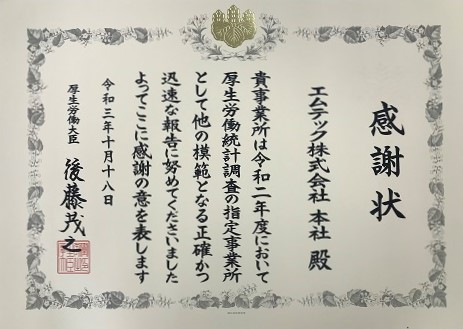 感謝状
エムテック株式会社 本社 殿
貴事業所は令和二年度において
厚生労働統計調査の指定事業所
として他の模範となる正確かつ
迅速な報告に努めてくださいました
よってここに感謝の意を表します
令和三年十月十八日
厚生労働大臣 後藤茂之